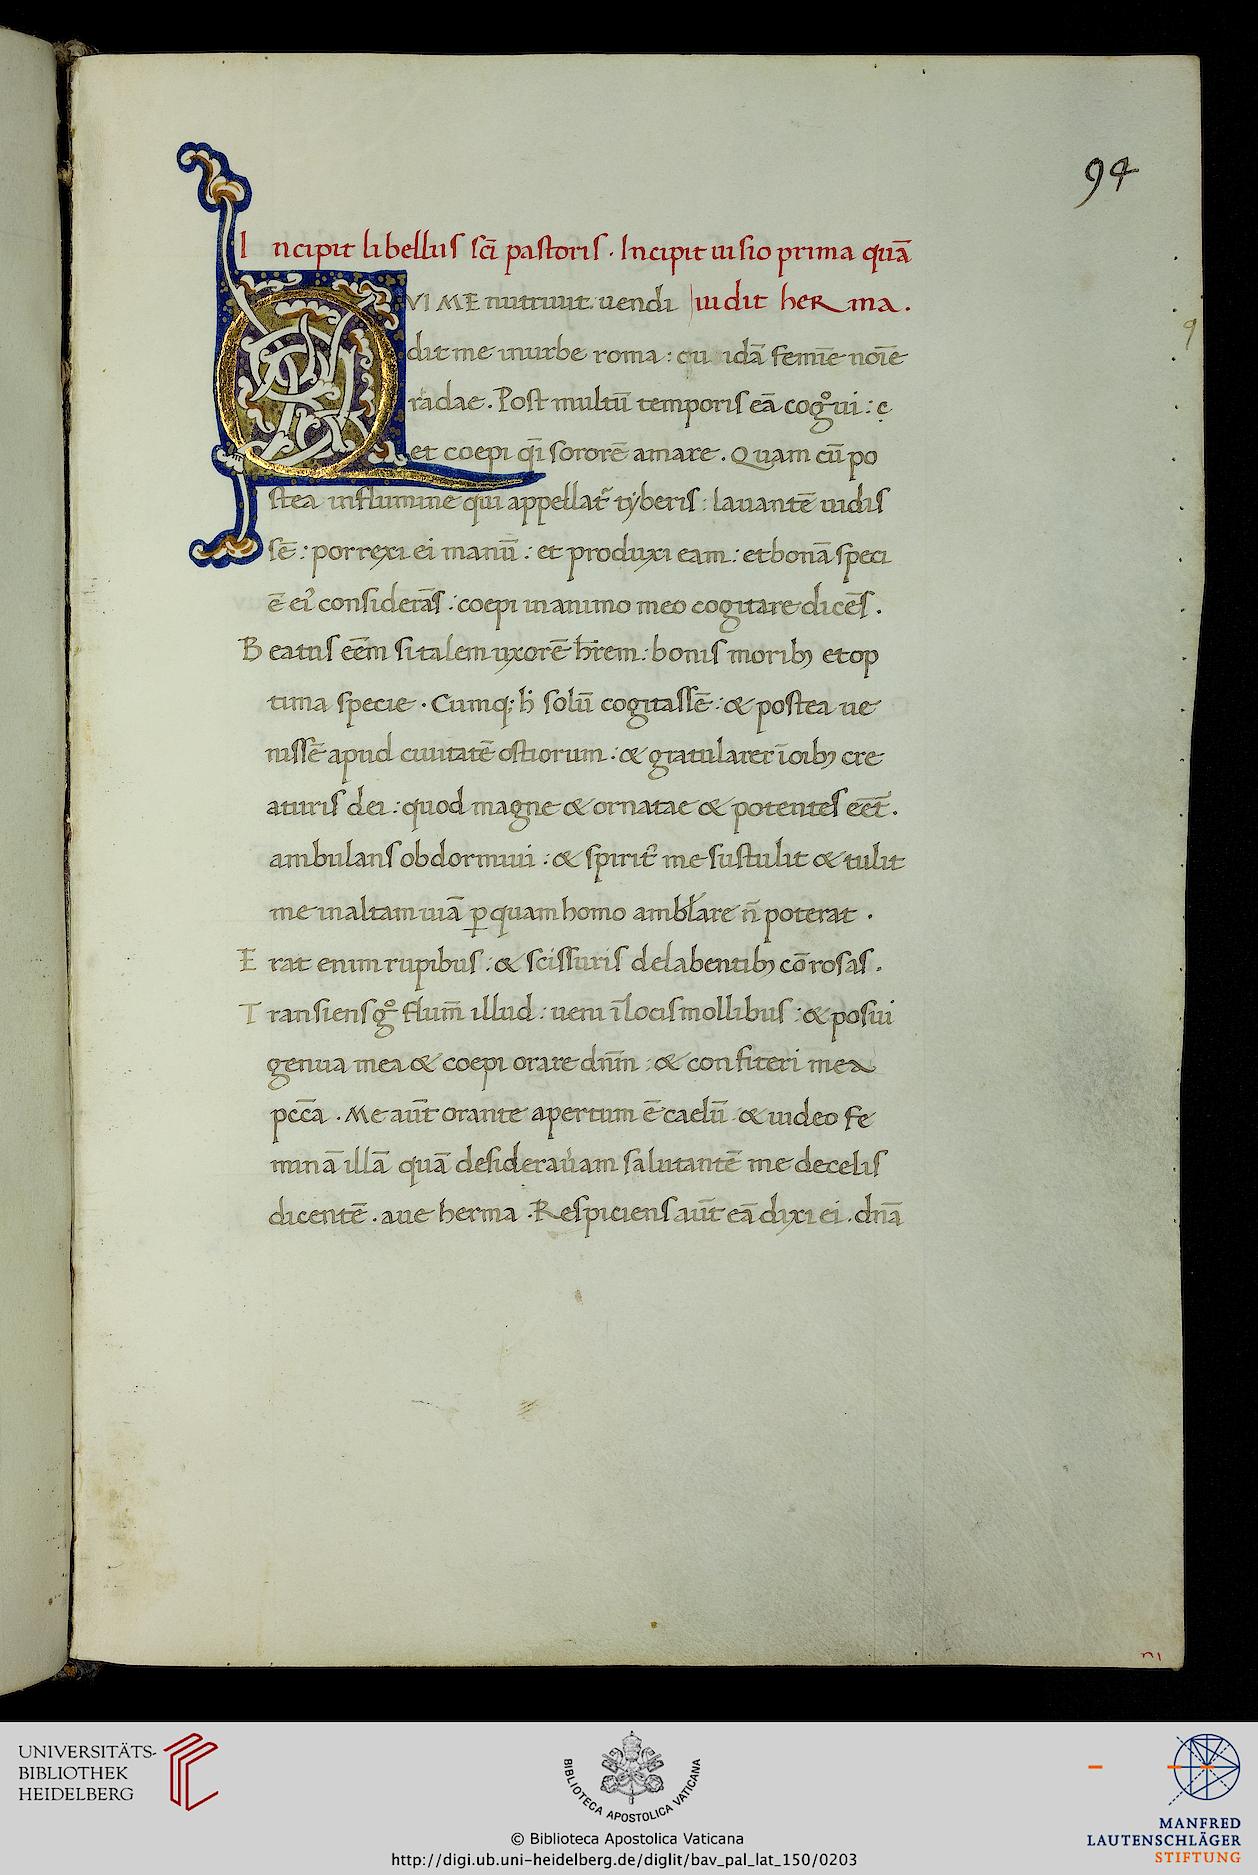 94
Incipit libellus scī pastoris. Incipit uisio prima quā
QVI ME nutriuit: uendi uidit herma.
dit me inurbe roma: cuidā femīe noīe
radae. Post multū temporis eā cogͦui: ę
et coepi qͥ sororē amare. Quam cū po
stea influmine qui appellatˀ tyberis: lauantē uidis
sē: porrexi ei manū: et produxi eam: et bonā speci
ē eiˀ considerās: coepi inanimo meo cogitare dicēs.
Beatus eēm si talem uxorē hr̄em: bonis moribꝫ et op
tima specie. Cumq; h̄ solū cogitassē: & postea ue
nissē apud ciuitatē ostiorum: & gratularer ī oībꝫ cre
aturis dei: quod magne & ornatae & potentes eēt.
ambulans obdormiui: & spiritˀ me sustulit & tulit
me inaltam uiā ꝑ quam homo ambl̄are n̄ poterat.
Erat enim rupibus: & scissuris delabentibꝫ cōrosas.
Transiens gͦ flum̄ illud: ueni ī locis mollibus: & posui
genua mea & coepi orare dnm̄: & confiteri mea
pcc̄a. Me aūt orante apertum ē caelū & uideo fe
minā illā quā desideraueram salutantē me decelis
dicentē. aue herma. Respiciens aūt eā dixi ei. dnā
UNIVERSITÄTS-
BIBLIOTHEK
HEIDELBERG
BIBLIOTECA APOSTOLICA VATICANA
© Biblioteca Apostolica Vaticana
http://digi.ub.uni-heidelberg.de/diglit/bav_pal_lat_150/0203
MANFRED
LAUTENSCHLÄGER
STIFTUNG